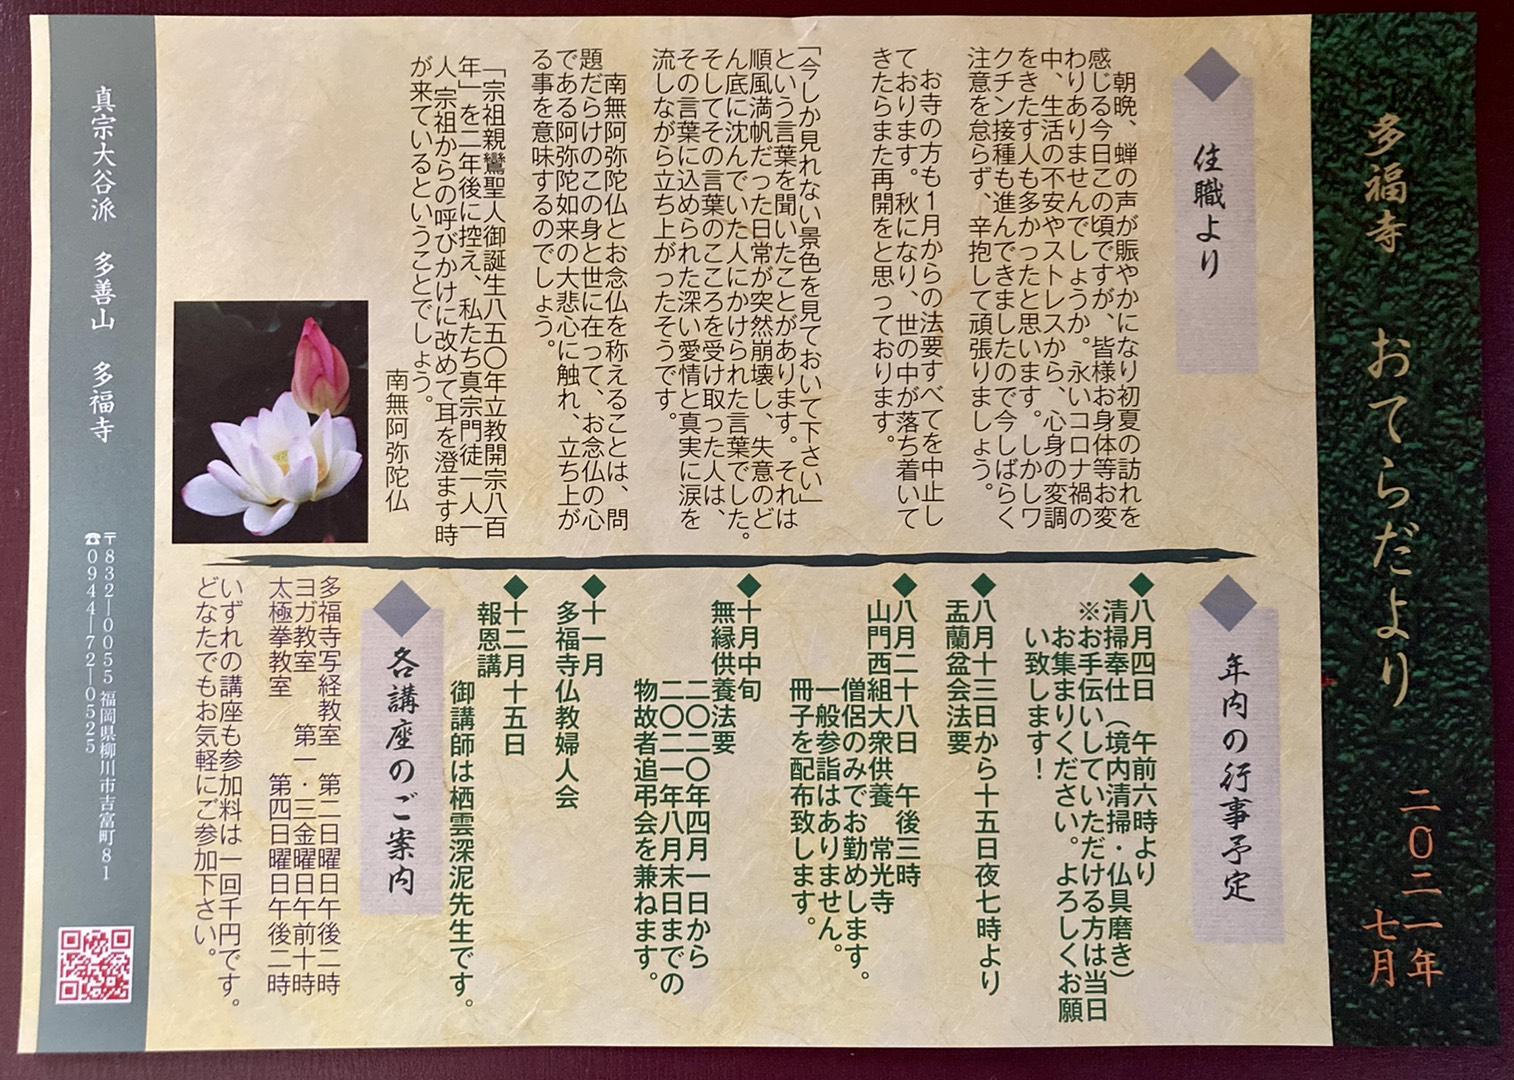 多福寺 おてらだより
二〇二一年
七月
住職より
朝晩、蝉の声が賑やかになり初夏の訪れを
感じる今日この頃ですが、皆様お身体等お変
わりありませんでしょうか。永いコロナ禍の
中、生活の不安やストレスから、心身の変調
をきたす人も多かったと思います。しかしワ
クチン接種も進んできましたので今しばらく
注意を怠らず、辛抱して頑張りましょう。
お寺の方も1月からの法要すべてを中止し
ております。秋になり、世の中が落ち着いて
きたらまた再開をと思っております。
「今しか見れない景色を見ておいて下さい」
という言葉を聞いたことがあります。それは
順風満帆だった日常が突然崩壊し、失意のど
ん底に沈んでいた人にかけられた言葉でした。
そしてその言葉のこころを受け取った人は、
その言葉に込められた深い愛情と真実に涙を
流しながら立ち上がったそうです。
南無阿弥陀仏とお念仏を称えることは、問
題だらけのこの身と世に在って、お念仏の心
である阿弥陀如来の大悲心に触れ、立ち上が
る事を意味するのでしょう。
「宗祖親鸞聖人御誕生八五〇年立教開宗八百
年」を二年後に控え、私たち真宗門徒一人一
人、宗祖からの呼びかけに改めて耳を澄ます時
が来ているということでしょう。
南無阿弥陀仏
年内の行事予定
◆八月四日 午前六時より
清掃奉仕(境内清掃・仏具磨き)
※お手伝いしていただける方は当日
お集まりください。よろしくお願
い致します!
◆八月十三日から十五日夜七時より
盂蘭盆会法要
◆八月二十八日 午後三時
山門西組大衆供養 常光寺
僧侶のみでお勤めします。
一般参詣はありません。
冊子を配布致します。
◆十月中旬
無縁供養法要
二〇二〇年四月一日から
二〇二一年八月末日までの
物故者追弔会を兼ねます。
◆十一月
多福寺仏教婦人会
◆十二月十五日
報恩講
御講師は栖雲深泥先生です。
各講座のご案内
多福寺写経教室 第二日曜日午後二時
ヨガ教室 第一・三金曜日午前十時
太極拳教室 第四日曜日午後二時
いずれの講座も参加料は一回千円です。
どなたでもお気軽にご参加下さい。
真宗大谷派 多善山 多福寺
〒832-0055 福岡県柳川市吉富町81
☎0944-72-0525